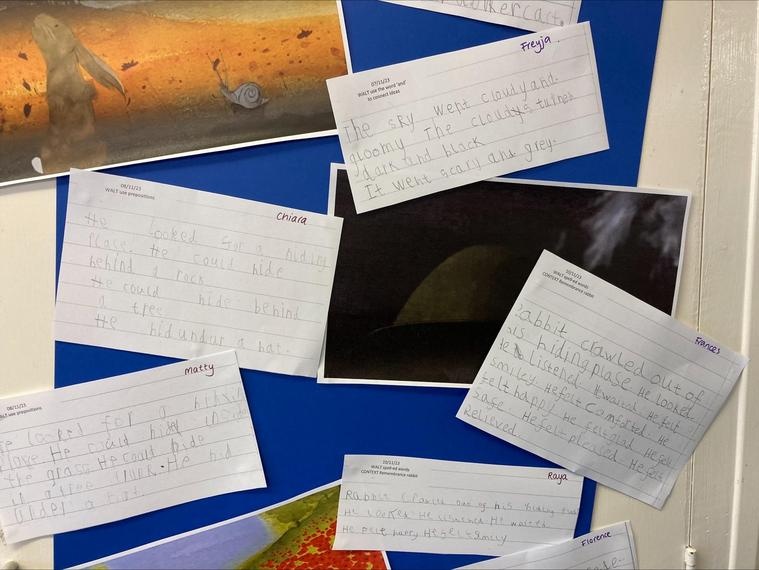 alkercart.
Freyja
07/11/23
WALT use the word 'and'
to connect ideas
The sky went cloudy and
gloomy The cloudys turned
dark and black
It went scary and grey.
08/11/23
WALT use prepositions
Chiara
He looked for a hiding
place. He could hide
behind a rock
He could hide behind
a tree.
He hid undur a hat.
10/11/23
WALT spell-ed words
CONTEXT Remembrance rabbit
Frances
Rabbit crawled out of
his hiding plase. He looked.
He listened. He waited. He felt
smiley. He felt comforted. He
felt happy. He felt glad. He felt
safe. He felt pleased. He felt
relieved.
08/11/23
WALT use prepositions
Matty
He looked for a
He could hide
the grass. He could hide
a tree He hid
under a hat.
10/11/23
WALT spell-ed words
CONTEXT Remembrance rabbit
Raya
Rabbit out of his hiding
He looked. He listened He waited
He felt happy He felt smily
Florence